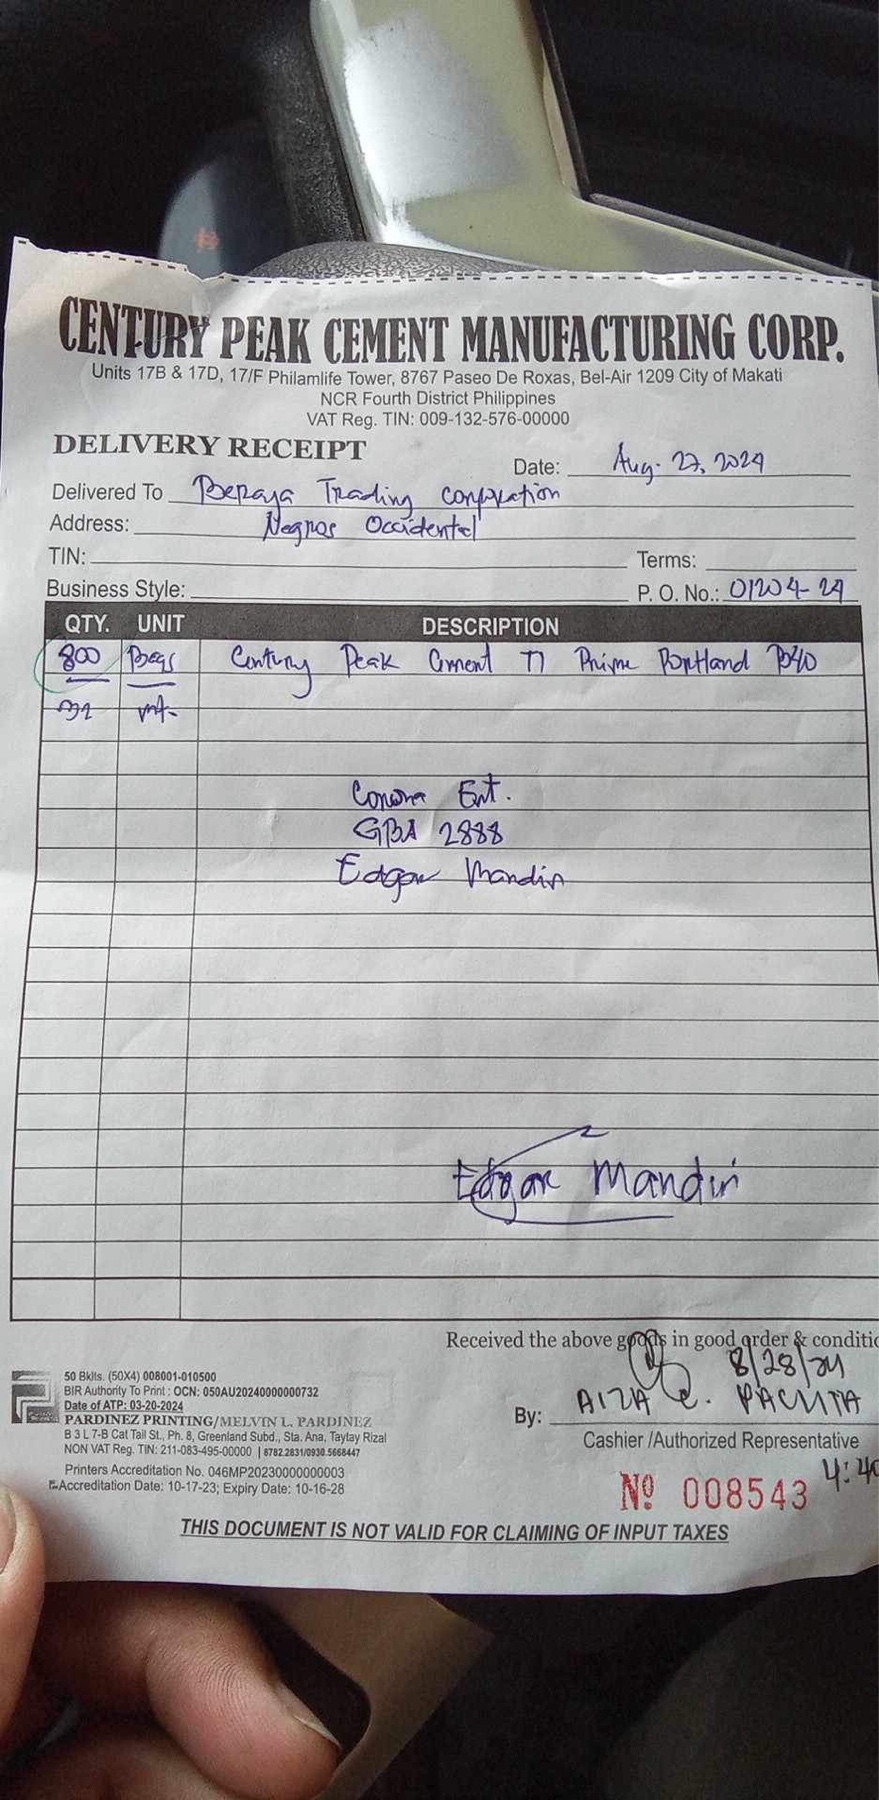 CENTURY PEAK CEMENT MANUFACTURING CORP.
Units 17B & 17D, 17/F Philamlife Tower, 8767 Paseo De Roxas, Bel-Air 1209 City of Makati
NCR Fourth District Philippines
VAT Reg. TIN: 009-132-576-00000
DELIVERY RECEIPT
Date: Aug. 27, 2024
Delivered To Trading Corporation
Address: Negros Occidental
TIN:
Terms:
Business Style:
P. O. No.: 01204-24
QTY. UNIT DESCRIPTION
800 Bags Century Peak Cement T1 Prime Portland P340
32 mt-
Ent.
GBA 2888
Edgar Mandin
Edgar Mandin
Received the above goods in good order & conditio
8/28/24
By: AIZA C.
Cashier /Authorized Representative
4:40
Nº 008543
50 Bklts. (50X4) 008001-010500
BIR Authority To Print : OCN: 050AU20240000000732
Date of ATP: 03-20-2024
PARDINEZ PRINTING/MELVIN L. PARDINEZ
B 3 L 7-B Cat Tail St., Ph. 8, Greenland Subd., Sta. Ana, Taytay Rizal
NON VAT Reg. TIN: 211-083-495-00000 | 6782.2831/0930.5668447
Printers Accreditation No. 046MP20230000000003
Accreditation Date: 10-17-23; Expiry Date: 10-16-28
THIS DOCUMENT IS NOT VALID FOR CLAIMING OF INPUT TAXES